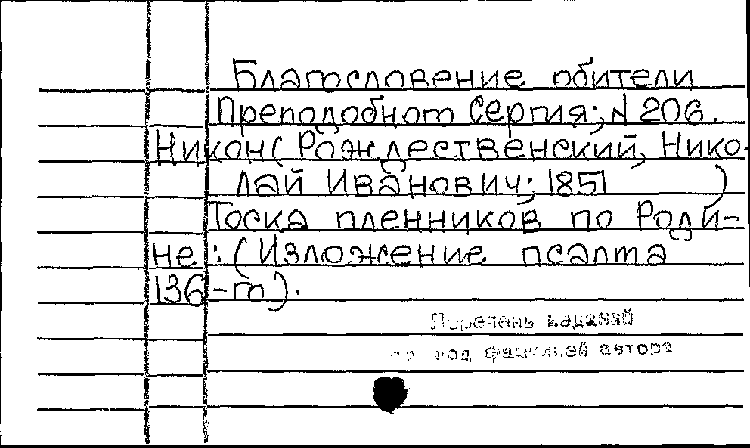 Благословение обители
Преподобного Сергия; N 206.
Никон (Рождественский, Нико-
лай Иванович; 1851 )
Тоска пленников по Роди-
не: (Изложение псалма
136-го).
Перечень изданий
см. под фамилией автора